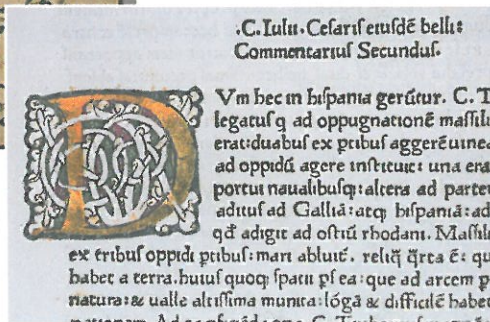 .C. Iuliı. Ceſariſ eiuſdē belli:
Commentariuſ Secunduſ.
D Vm hec in hiſpania gerūtur. C. T
legatuſq ad oppugnationē maſſili
erat: duabuſ ex ptibuſ aggerē uinea
ad oppidū agere inſtituit: una era
portui naualibuſq: altera ad partem
adituſ ad Galliā: atq hiſpaniā: ad
qđ adigit ad oſtiū rhodani. Maſſili
ex tribuſ oppidi ptibuſ: mari abluit᷑. reliq̄ q̄rta ē: qu
habet a terra. huiuſ quoq ſpatii pſ ea: que ad arcem p
natura: & ualle altiſſima munita: lōgā & difficilē habet